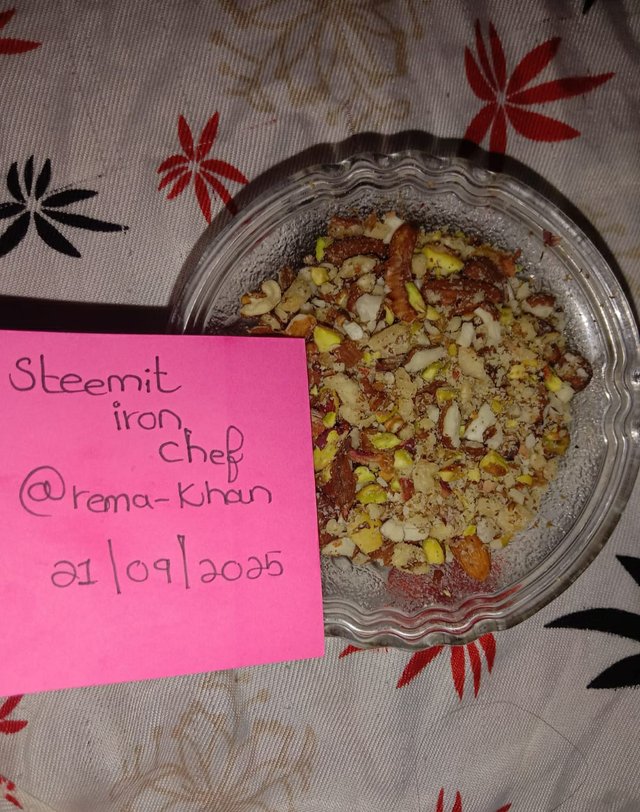 Steemit
iron
chef
@rema-Khan
21/09/2025